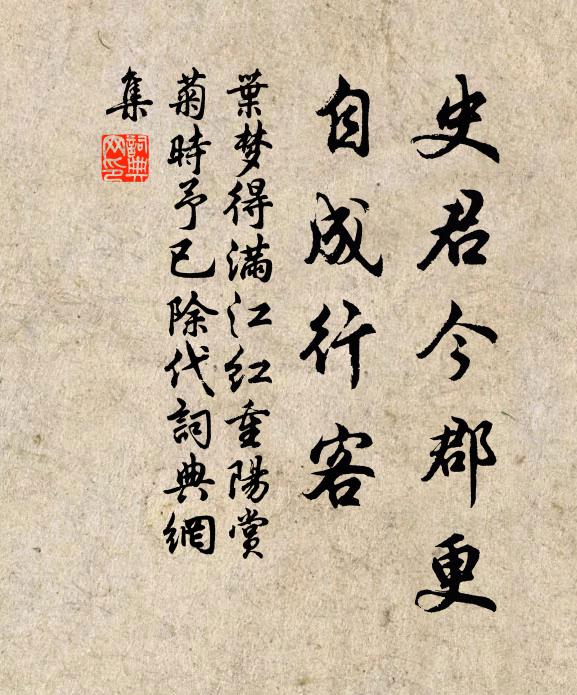 史君今郡更
自成行客
葉梦得满江红重陽賞
菊時予已除代詞典網
集
詞典
网印